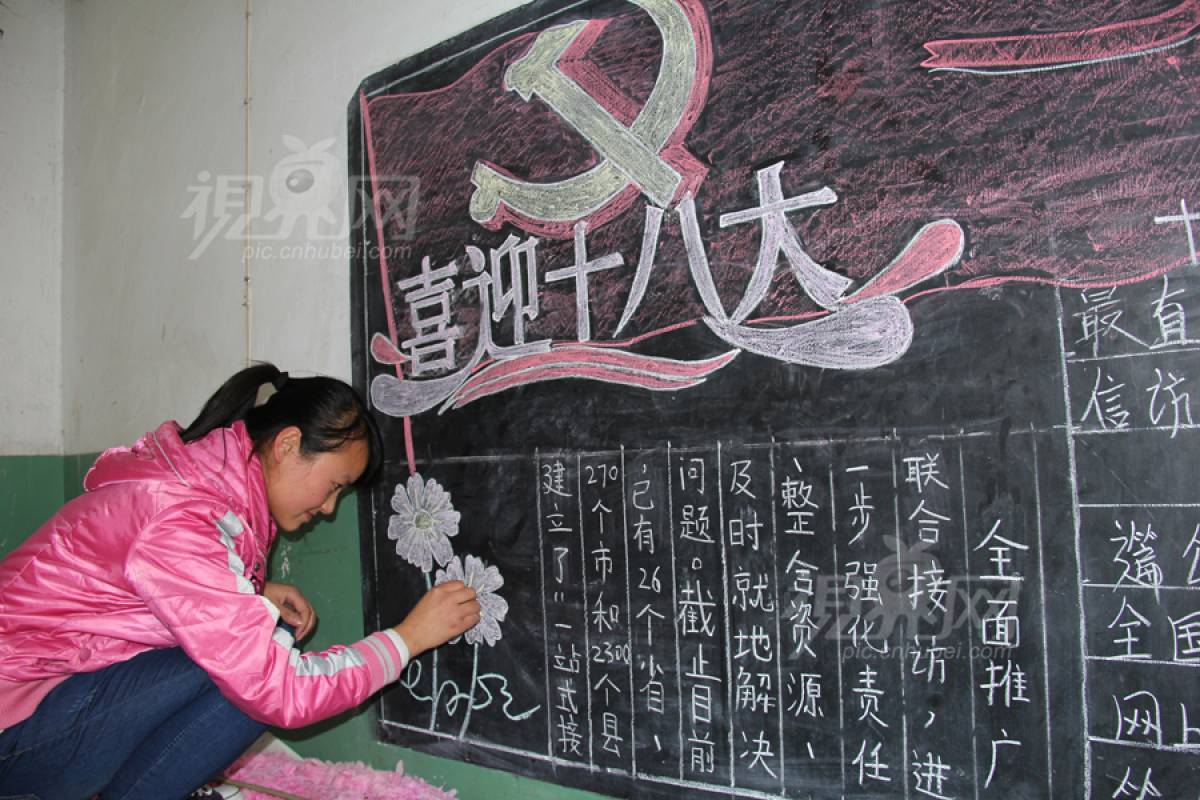 喜迎十八大
全面推广
联合接访，进
一步强化责任
、整合资源、
及时就地解决
问题。截止目前
，已有26个省、
270个市和2300个县
建立了"一站式接
最直
信访
全国
网上
視界网
pic.cnhubei.com
視界网
pic.cnhubei.com